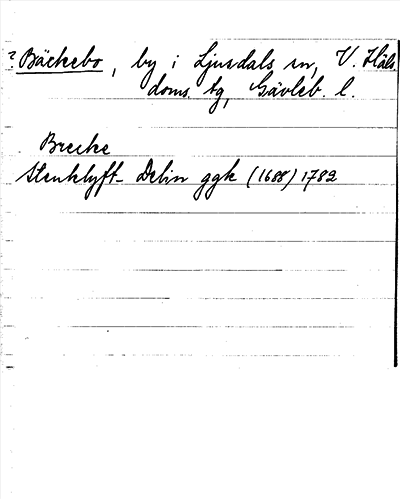 ? Bäckebo, by i Ljusdals sn, V. Häls.
doms. tg, Gävleb. l.
Brecke
Stenklyft- Delin ggk (1688) 1782